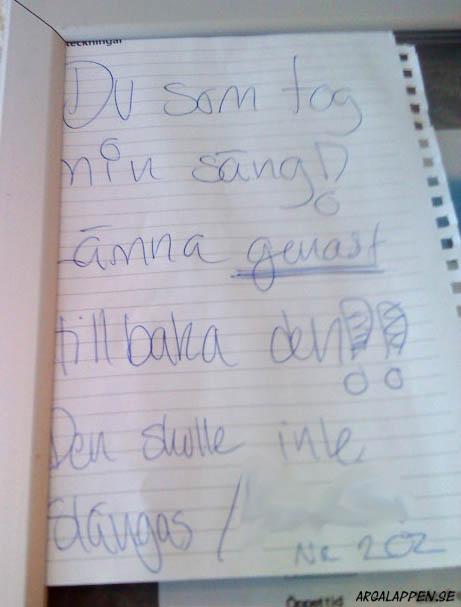 teckningar
Du som tog
min säng!
Lämna genast
tillbaka den!!
Den skulle inte
slängas /
Nr 202
Öppettid
ARGALAPPEN.SE